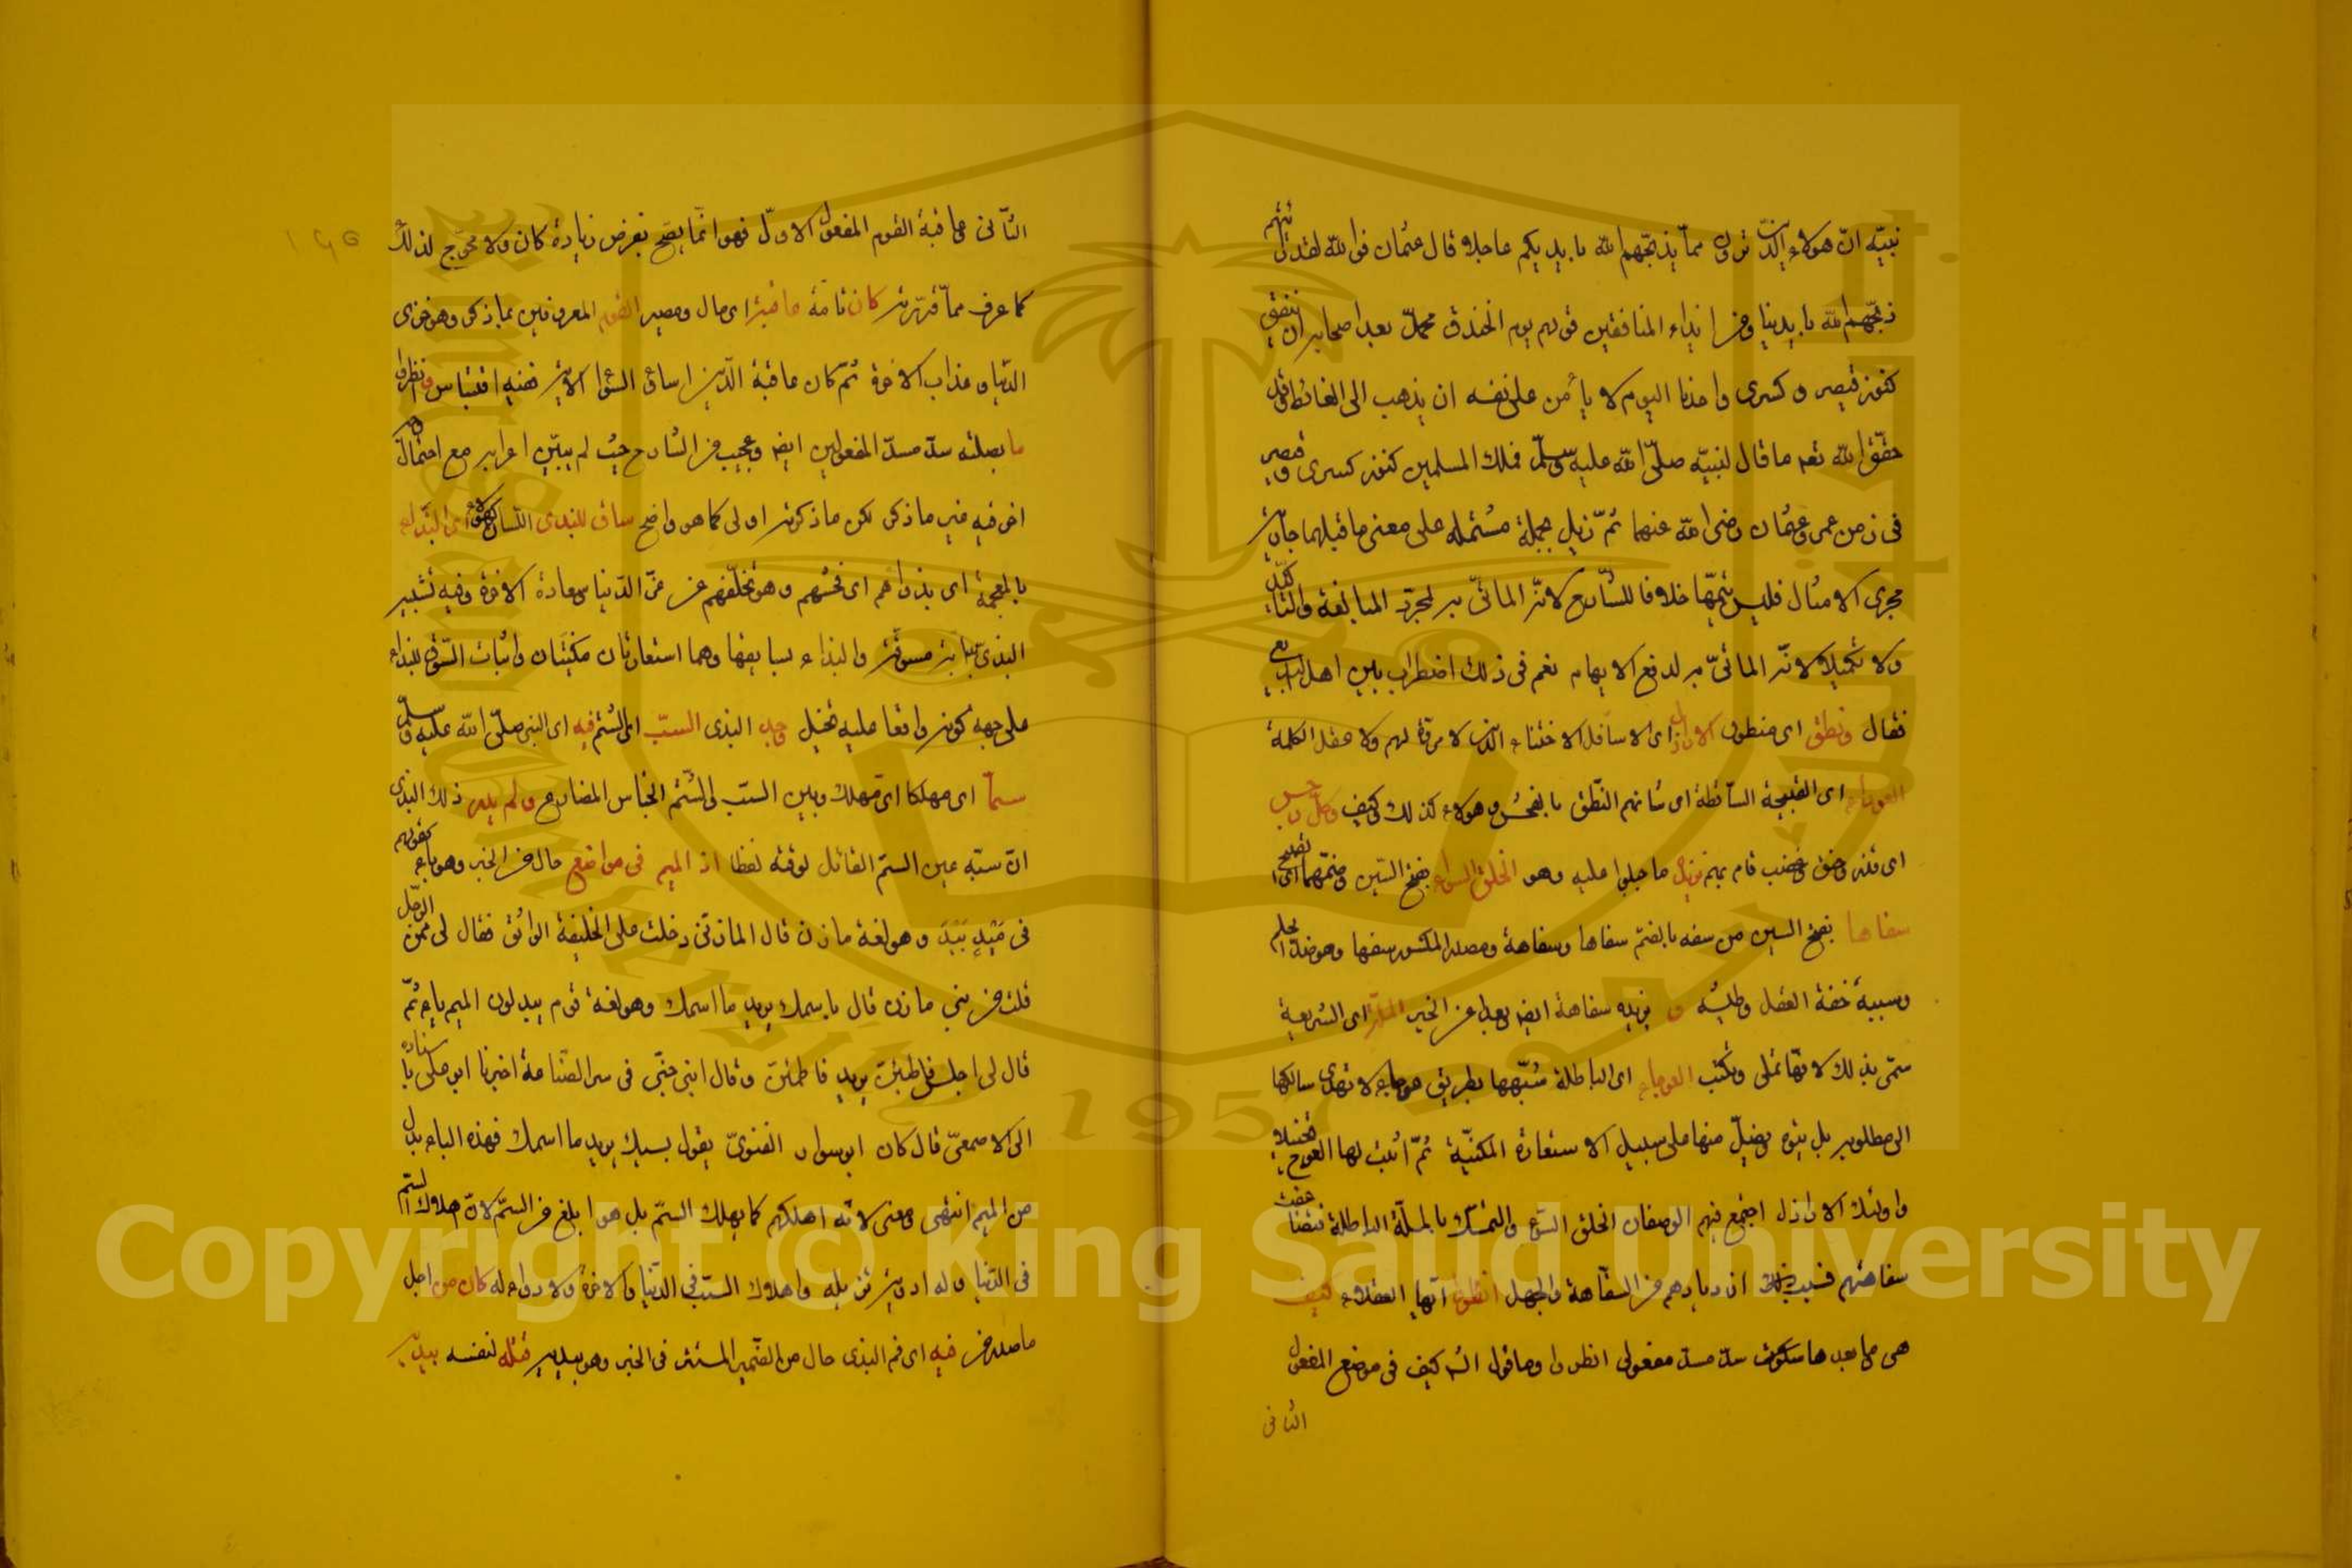 نبيّه انّ هولاء الذين ترون ممّا يذبحهم الله بايديكم عاجلا قال عثمان فوالله لقد رأيتهم
ذبحهم الله بايدينا ومن ايذاء المنافقين قولهم يوم الخندق محمّد يعد اصحابه ان ينفق
كنوز قيصر وكسرى واحدنا اليوم لا يأمن على نفسه ان يذهب الى الغائط وقد
حقّق الله تعه ما قال لنبيّه صلّى الله عليه وسلّم فملك المسلمين كنوز كسرى وقيصر
فى زمن عمر وعثمان رضى الله عنهما ثمّ ذيل بجملة مشتمله على معنى ما قبلها جارية
مجرى الامثال فليس تتميما خلافا للشارح لانّه المأتىّ به لمجرّد المبالغة والتأكيد
ولا تكميلا لانّه المأتىّ به لدفع الايهام نعم فى ذلك اضطراب بين اهل البديع
فقال ونطق اى منطوق الاراذل اى الاسافل الاخسّاء الذين لا مروّة لهم ولا عقل الكلمة
العوراء اى القبيحة الساقطة اى شانهم النّطق بالفحش وهولاء كذلك وكيف وكلّ رجس
سفاها بفتح السين من سفه بالضمّ سفاها وسفاهة ومصدر المكسور سفها وهو ضدّ الحلم
وسببه خفة العقل وطيشه و يزيده سفاهة ايضا وبعدا عن الخير الملّة اى الشريعة
سمّى بذلك لانّها تملى وتكتب العوجاء اى الباطلة شبّهها بطريق عوجاء لا تهدى سالكها
الى مطلوبه بل يتوه ويضلّ منها على سبيل الاستعارة المكنيّة ثمّ اثبت لها العوج تخييلا
واولئك الاراذل اجتمع فيهم الوصفان الخلق السّوء والتمسّك بالملّة الباطلة فتضاعفت
سفاهتهم فسبب ذلك ازديادهم من السفاهة والجهل انظروا ايّها العقلاء كيف
هى وما بعدها سكوت سدّ مسدّ مفعولى انظروا وما قول الش كيف فى موضع المفعول
الثانى
الثّانى وعاقبة القوم المفعول الاوّل فهو انّما يصّح بفرض زيادة كان ولا محوّج لذلك
كما عرف ممّا قرّرته كان تامّة عاقبة اى مال ومصير القوم المعروفين بما ذكر وهو خزى
الدّنيا وعذاب الاخرة ثمّ كان عاقبة الّذين اساؤا السّوأى الاية ففيه اقتباس ونظروا
ما بصلته سدّ مسدّ المفعولين ايض وعجيب من الشارح حيث لم يبيّن اعرابه مع احتمال
اخر فيه غير ما ذكر لكن ما ذكرته اولى كما هو واضح ساق للبذى اللسان كهولاء اى البذاء
بالمعجمة اى بذواهم اى فحشهم وهو تخلّفهم عن عزّ الدّنيا وسعادة الاخرة وفيه تشبيه
البذىّ بدابة مسوقة والبذاء بسايقها وهما استعارتان مكنيّتان واثبات السّوق للبذاء
على جهة كونه واقعا عليه تخييل وجد البذى السبّ اى الشتم فيه اى النبى صلّى الله عليه وسلّم
سمّا اى مهلكا اى مهلك وبين السبّ والسّمّ الجناس المضارع ولم يدر ذلك البذى
انّ سبّه عين السمّ القاتل لوقته لفظا اذ الميم فى مواضع حال من الخبر وهو باء كقولهم
فى مَيْدٍ بَيْدَ وهو لغة مازن قال المازنى دخلت على الخليفة الواثق فقال لى ممّن الرّجل
قلت من بنى مازن قال باسمك يريد ما اسمك وهو لغة قوم يبدلون الميم باء ثمّ
قال لى اجلس فاطبئن يريد فاطمئن وقال ابن جنّى فى سرّ الصّناعة اخبرنا ابو على باسناده
الى الاصمعىّ قال كان ابو سوار الغنوىّ يقول بسبك يريد ما اسمك فهذه الباء بدل
من الميم انتهى ومعنى لانّه اهلكهم كما يهلك السمّ بل هو ابلغ من السمّ لانّ هلاك السّمّ
فى الدّنيا وله ادوية تزيله واهلاك السبّ فى الدّنيا والاخرة ولا دواء له كان من اجل
ما صدر من فيه اى فم البذى حال من الضّمير المستتر فى الخبر وهو بيديه قتله لنفسه بيديه
Copyright © King Saud University
1957